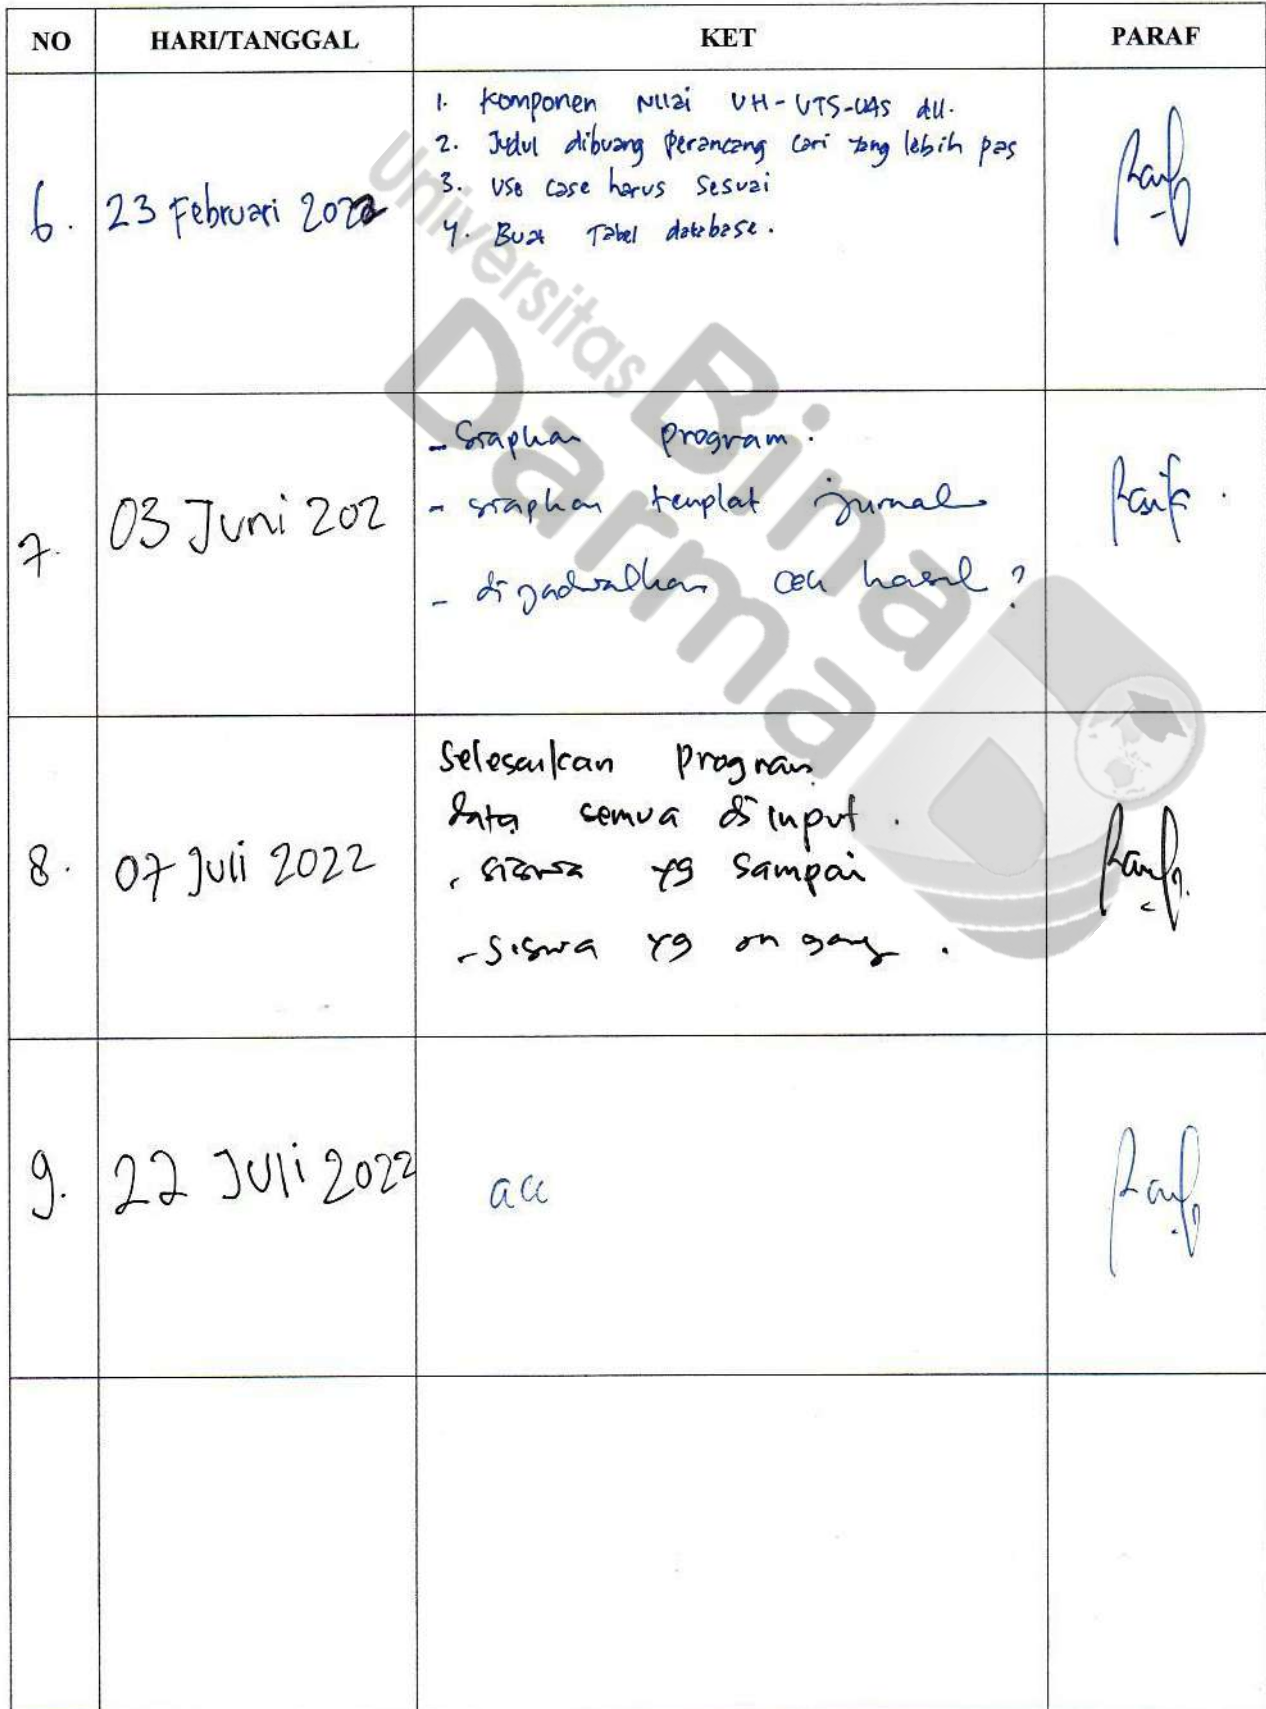 NO HARI/TANGGAL KET PARAF
6. 23 Februari 2022
1. Komponen Nilai UH-UTS-UAS dll.
2. Judul dibuang Perancang cari yang lebih pas
3. Use case harus sesuai
4. Buat Tabel database.
7. 03 Juni 202
- Siapkan program.
- siapkan templat jurnal
- dijadwalkan cek hasil ?
8. 07 Juli 2022
Selesaikan Program
data semua di input.
- siswa yg sampai
- siswa yg on going.
9. 22 Juli 2022
acc
Universitas
Bina
Darma